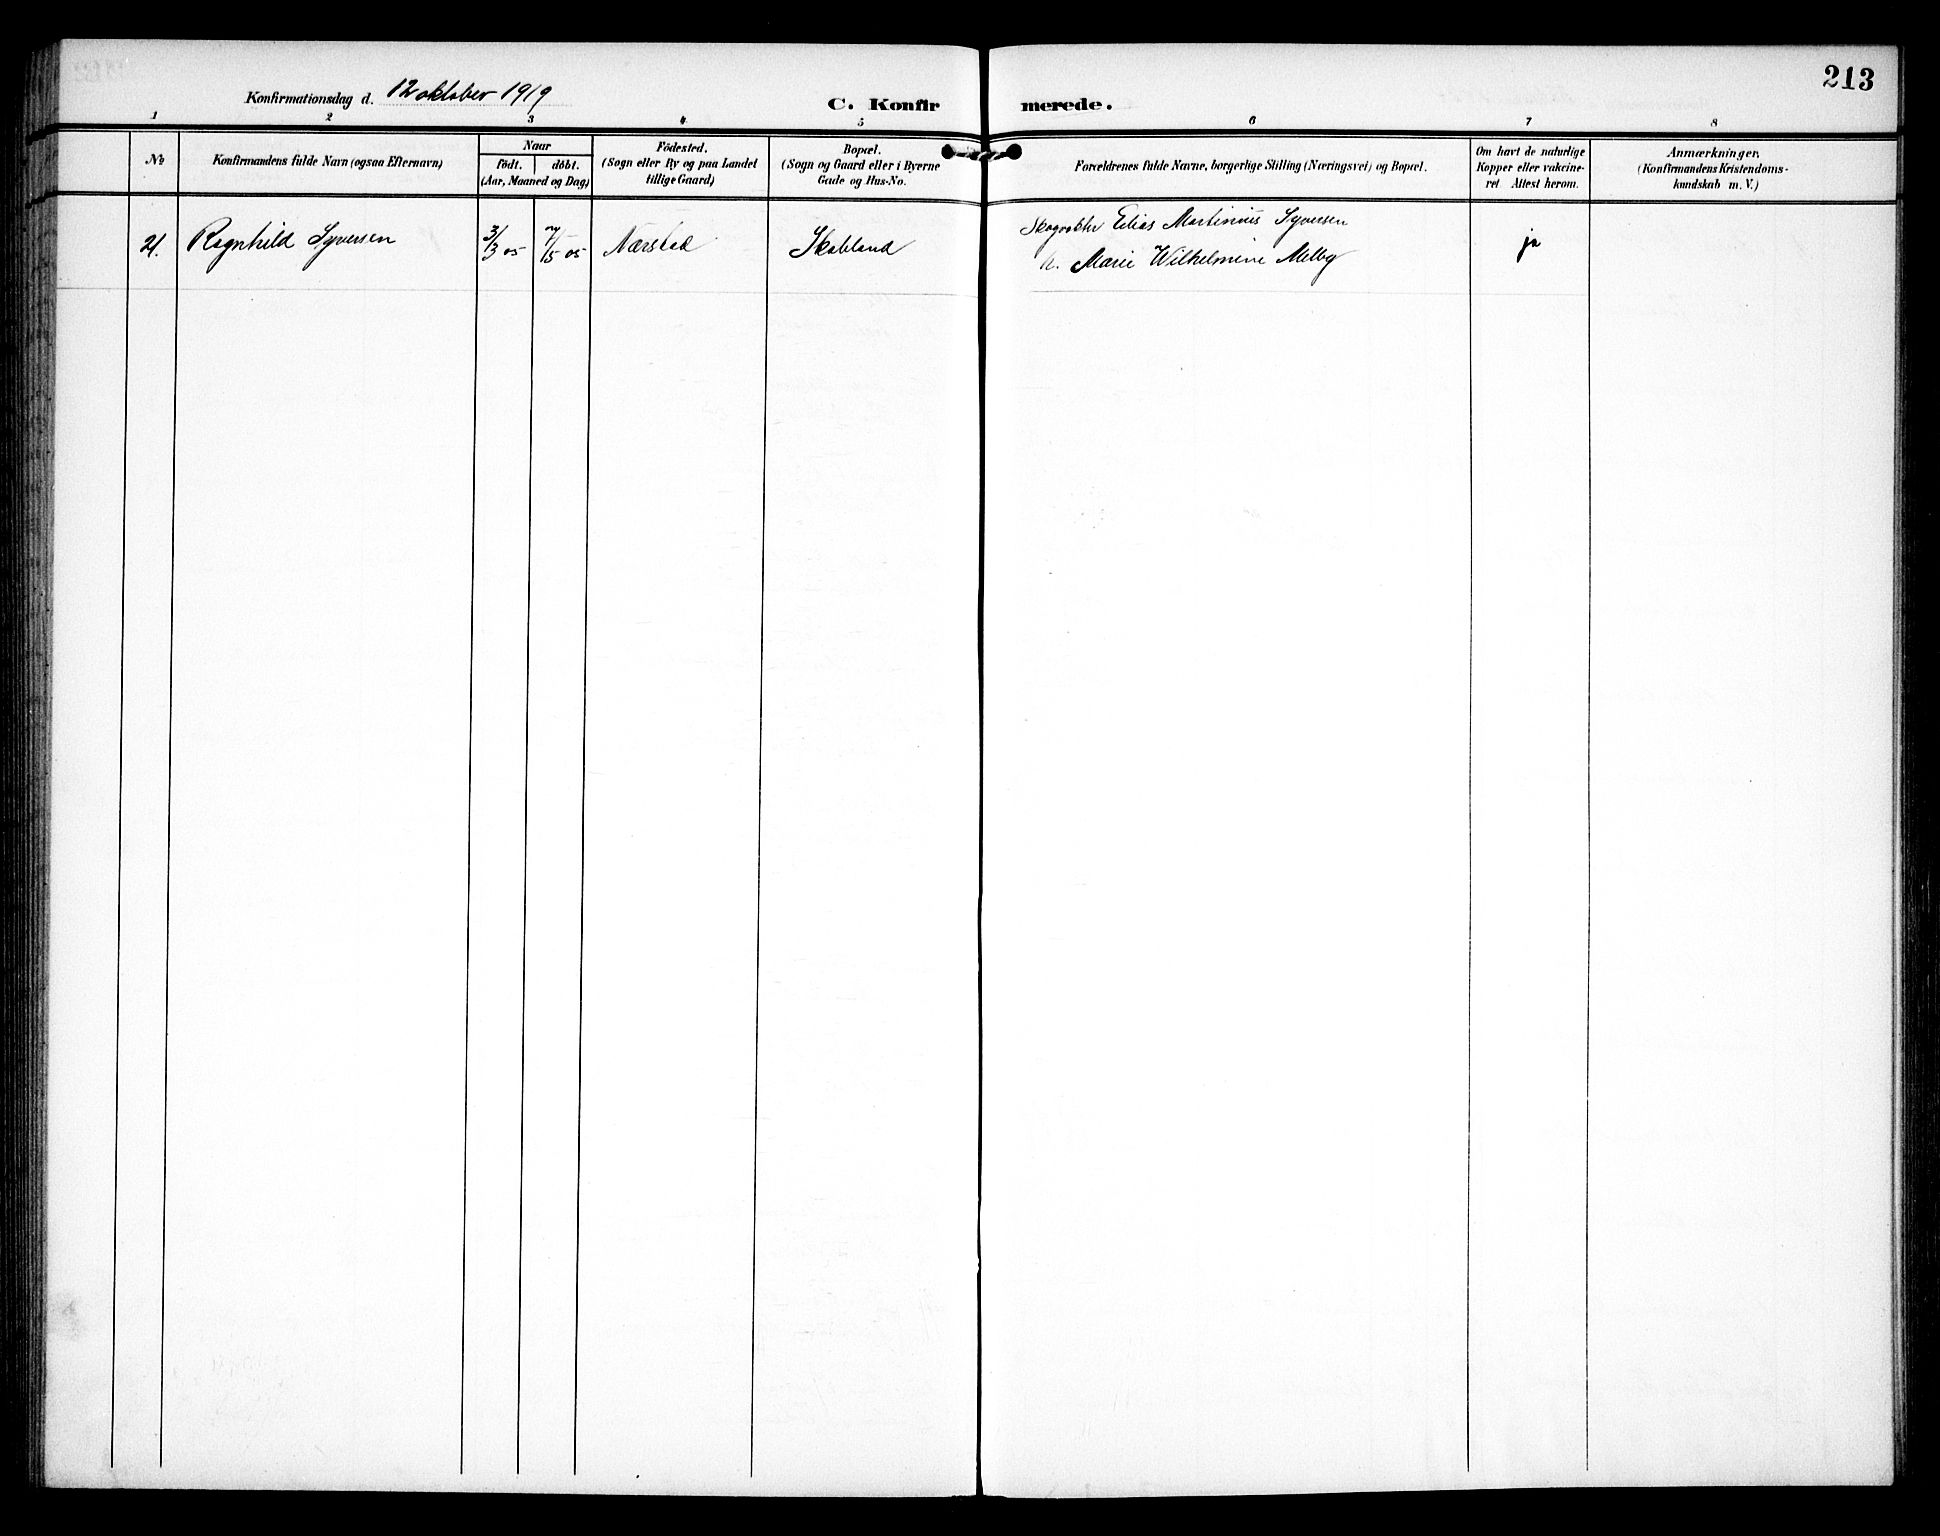 213
Konfirmationsdag d. 12 oktober 1919
C. Konfirmerede.
1 2 3 4 5 6 7 8
No
Konfirmandens fulde Navn (ogsaa Efternavn)
Naar
födt. döbt.
(Aar, Maaned og Dag)
Födested.
(Sogn eller By og paa Landet
tillige Gaard)
Bopæl.
(Sogn og Gaard eller i Byerne
Gade og Hus-No.
Forældrenes fulde Navne, borgerlige Stilling (Næringsvei) og Bopæl.
Om havt de naturlige
Kopper eller vakcine-
ret Attest herom.
Anmærkninger.
(Konfirmandens Kristendoms-
kundskab m. V.)
21. Ragnhild Syversen 3/3 05 7/5 05 Nærstad Skabland
Elias Martinius Syversen
h. Marie Wilhelmine Melby
ja